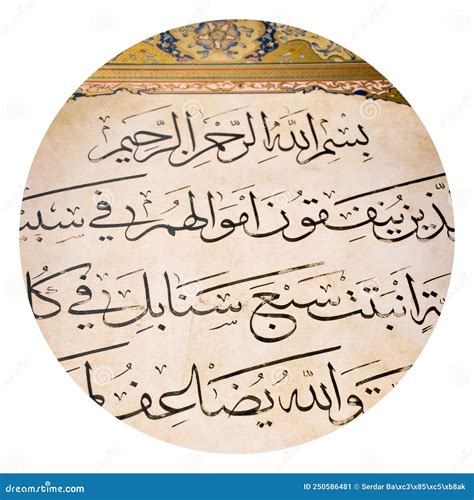 بسم الله الرحمن الرحيم
لذين ينفقون اموالهم في سبي
ة انبتت سبع سنابل في كل
والله يضاعف لم
dreamstime.com
ID 250586481 © Serdar Ba\xc3\x85\xc5\xb8ak